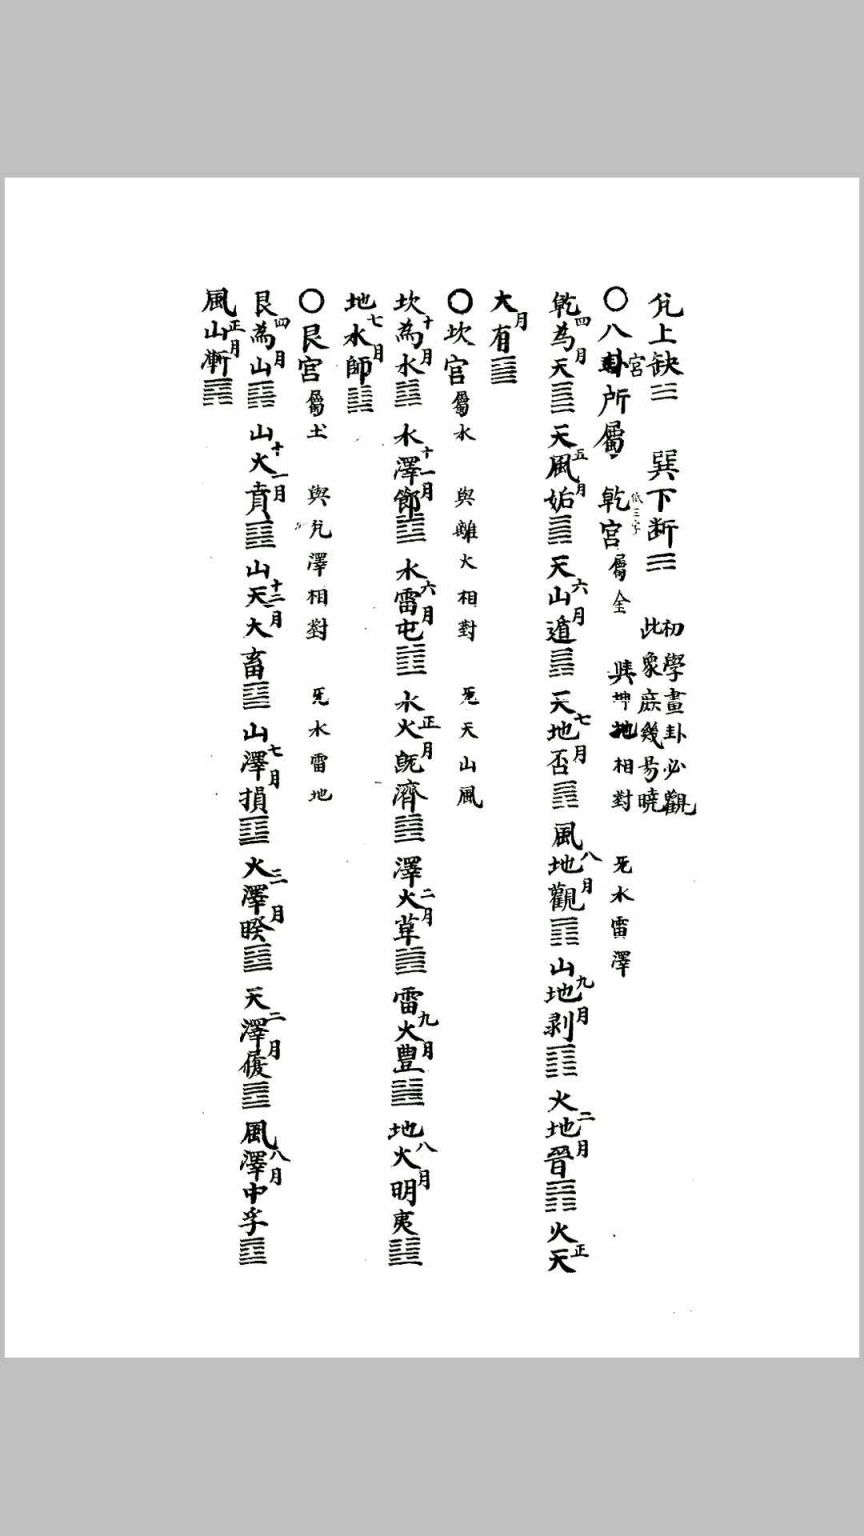 兌上缺☱ 巽下断☴ 初學畫卦必觀此象庻幾昜曉
〇八卦宮所屬 乾宮低三字 屬金 與坤地相對 旡水雷澤
乾為天四月䷀ 天風姤五月䷫ 天山遁六月䷠ 天地否七月䷋ 風地觀八月䷓ 山地剥九月䷖ 火地晉二月䷢ 火天正
大有月䷍
〇坎宮屬水 與離火相對 旡天山風
坎為水十月䷜ 水澤節十一月䷻ 水雷屯六月䷂ 水火旣濟正月䷾ 澤火革二月䷰ 雷火豐九月䷶ 地火明夷八月䷣
地水師七月䷆
〇艮宮屬土 與兌澤相對 旡水雷地
艮為山四月䷳ 山火賁十一月䷕ 山天大畜十二月䷙ 山澤損七月䷨ 火澤睽二月䷥ 天澤履三月䷉ 風澤中孚八月䷼
風山漸正月䷴